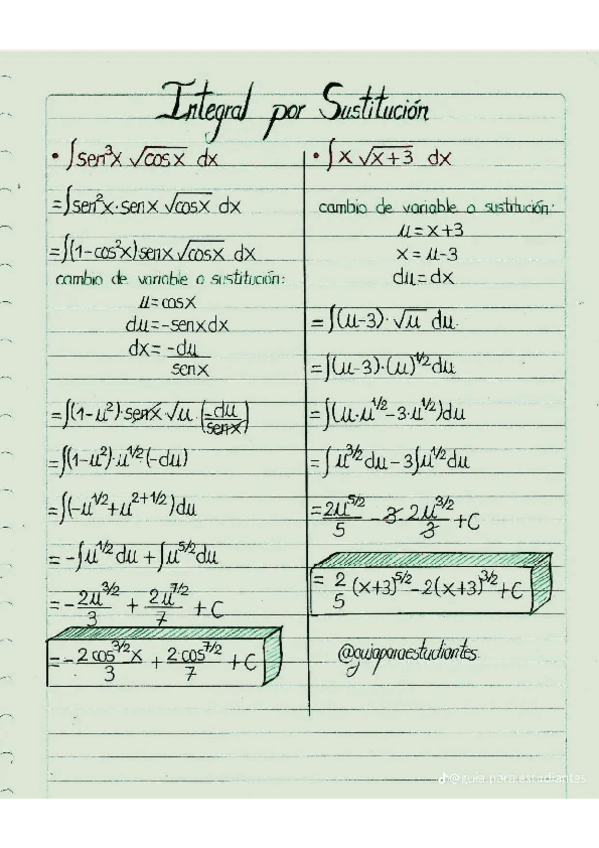 Integral por Sustitución
• ∫sen³x √cosx dx
= ∫sen²x·senx √cosx dx
= ∫(1-cos²x)senx √cosx dx
cambio de variable o sustitución:
u=cosx
du=-senxdx
dx= -du/senx
= ∫(1-u²)·senx·√u (-du/senx)
= ∫(1-u²)·u^1/2 (-du)
= ∫(-u^1/2+u^2+1/2)du
= -∫u^1/2 du + ∫u^5/2 du
= -2u^3/2/3 + 2u^7/2/7 + C
= -2cos^3/2 x/3 + 2cos^7/2/7 + C
• ∫x √x+3 dx
cambio de variable o sustitución:
u=x+3
x=u-3
du=dx
= ∫(u-3)·√u du
= ∫(u-3)·(u)^1/2 du
= ∫(u·u^1/2-3·u^1/2)du
= ∫u^3/2 du - 3∫u^1/2 du
= 2u^5/2/5 - 3·2u^3/2/3 + C
= 2/5 (x+3)^5/2 - 2(x+3)^3/2 + C
@guiaparaestudiantes
@guia.para.estudiantes